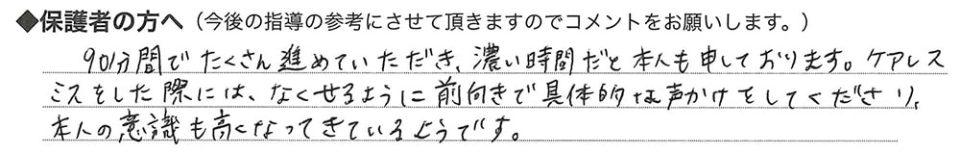 ◆保護者の方へ（今後の指導の参考にさせて頂きますのでコメントをお願いします。）
90分間でたくさん進めていただき、濃い時間だと本人も申しております。ケアレス
ミスをした際には、なくせるように前向きで具体的な声かけをしてくださり、
本人の意識も高くなってきているようです。